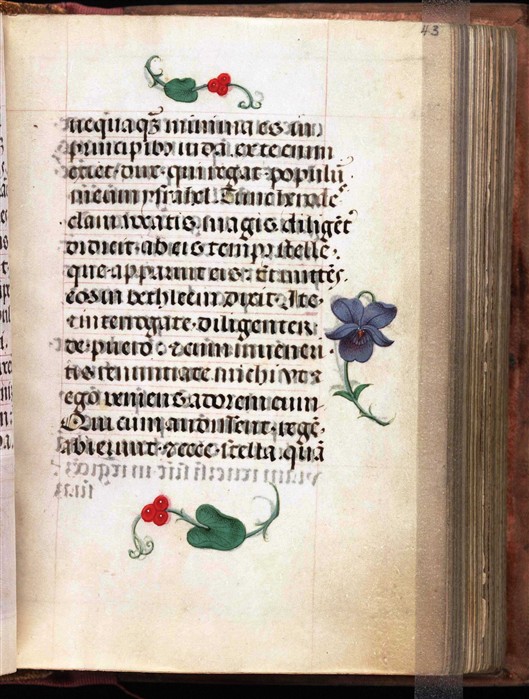 43
nequaqȝ minima es in
principibꝰ iuda. ex te enim
exiet · dux · qui regat · populū ·
meum ysrahel. Tunc herodes
clam vocatis magis diligēt
didicit · ab eis tempꝰ stelle ·
que · apparuit eis : Et mittēs ·
eos in bethleem dixit. Ite ·
⁊ interrogate · diligenter
de · puero : ⁊ cum inueneri ·
tis renuntiate michi vt ⁊
ego veniens adorem eum
Qui cum audissent · regē ·
abierunt · ⁊ ecce · stella · quā